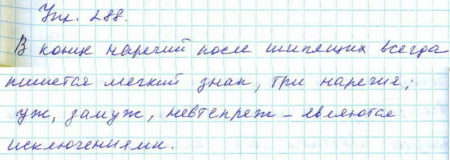 Упр. 288.
В конце наречий после шипящих всегда
пишется мягкий знак, три наречия;
уж, замуж, невтерпреж – являются
исключениями.